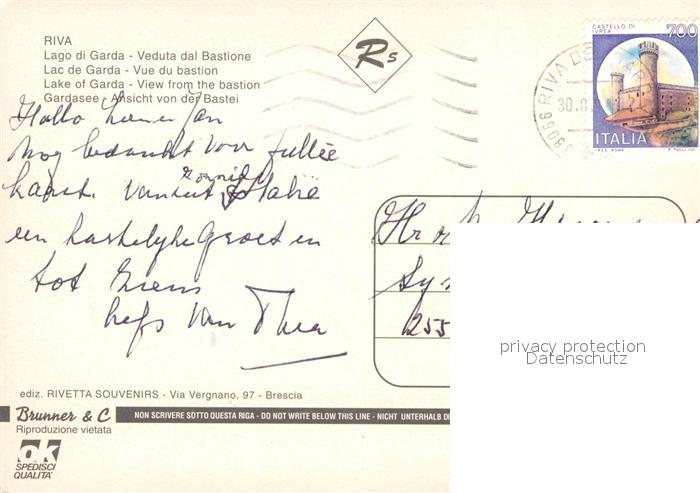 RIVA
Lago di Garda - Veduta dal Bastione
Lac de Garda - Vue du bastion
Lake of Garda - View from the bastion
Gardasee - Ansicht von der Bastei
Rs
CASTELLO DI IVREA
700
ITALIA
I.P.Z.S. ROMA
38066 RIVA D
30.8
Hallo Jan
Nog bedankt voor jullie
kaart. Vanuit zonnig Italië
een hartelijke groet en
tot ziens
liefs van Thea
Hr
255
privacy protection
Datenschutz
ediz. RIVETTA SOUVENIRS - Via Vergnano, 97 - Brescia
Brunner & C
Riproduzione vietata
NON SCRIVERE SOTTO QUESTA RIGA - DO NOT WRITE BELOW THIS LINE - NICHT UNTERHALB DI
ok
SPEDISCI
QUALITA'